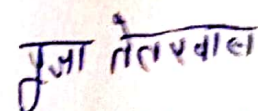 पूजा तेतरवाल